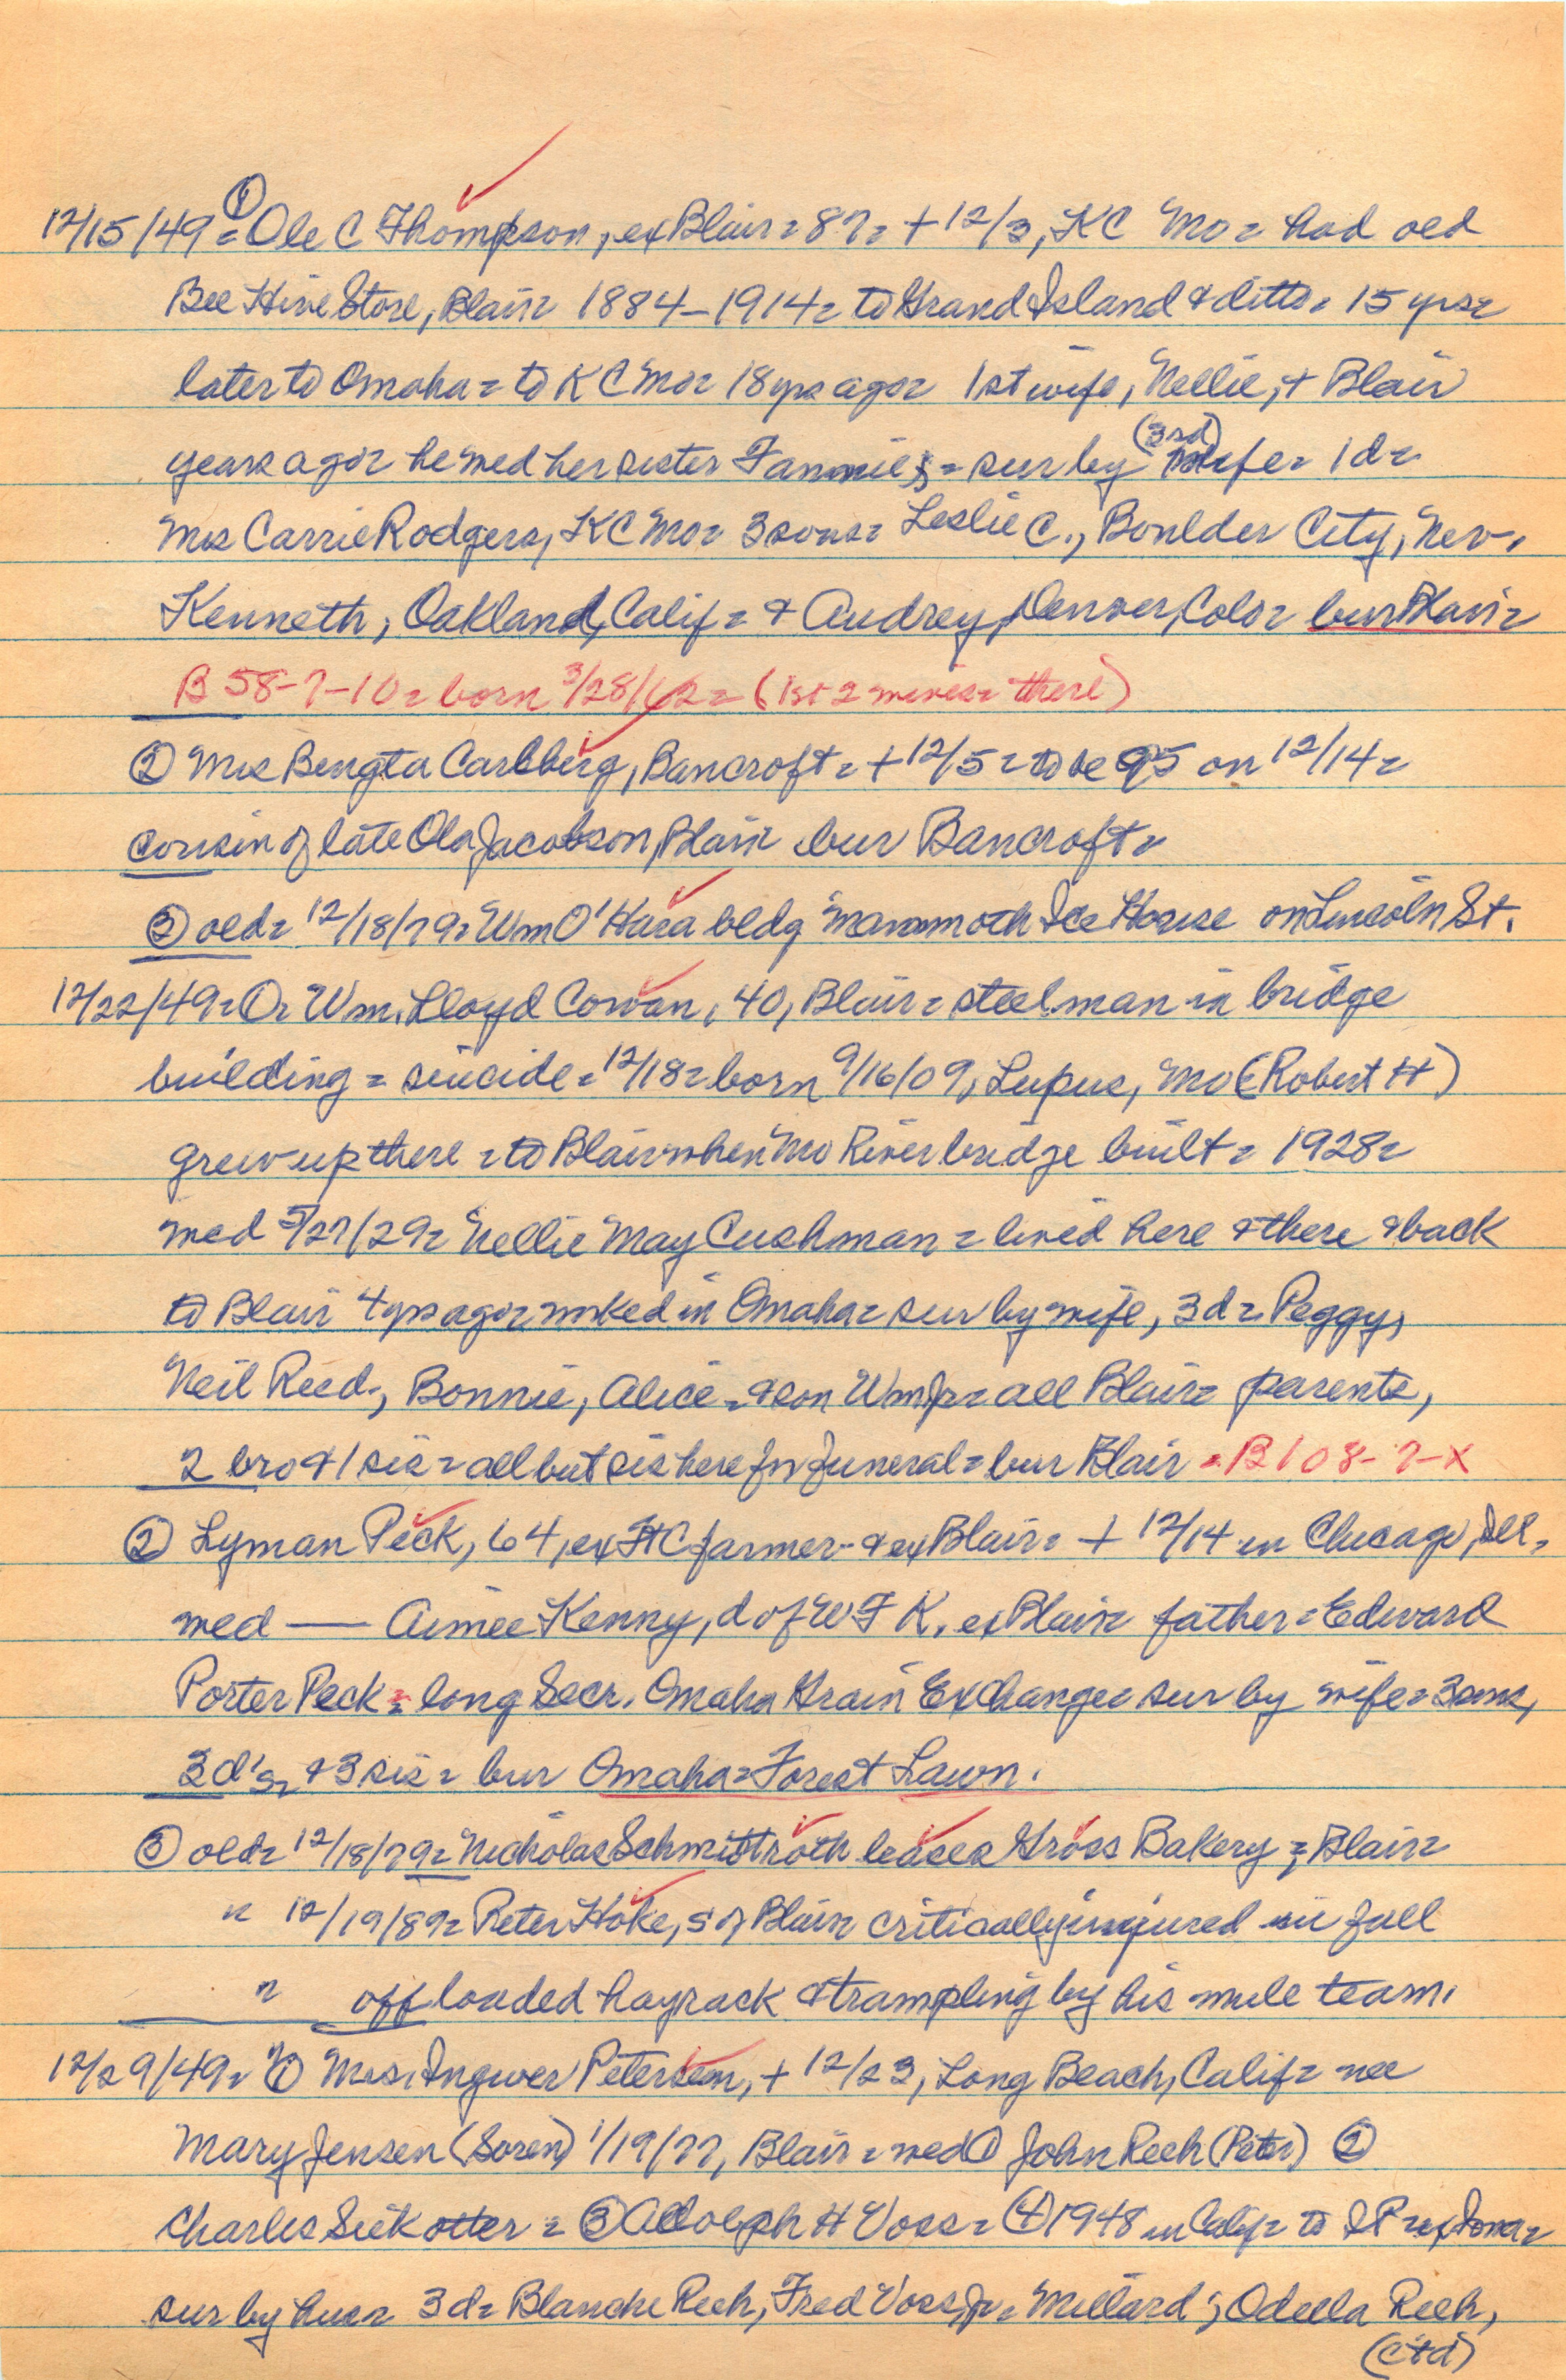 12/15/49 = ① Ole C Thompson, ex Blair = 87 = + 12/3, KC Mo = had old
Bee Hive Store, Blair = 1884-1914 = to Grand Island & ditto = 15 yrs =
later to Omaha = to KC Mo = 18 yrs ago = 1st wife, Nellie, + Blair
years ago = he med her sister Fannie; = sur by (3rd) wife = 1 d =
Mrs Carrie Rodgers, KC Mo = 3 sons = Leslie C., Boulder City, Nev.
Kenneth, Oakland, Calif = & Audrey, Denver, Colo = bur Blair =
B 58-7-10 = born 3/28/62 = (1st 2 wives = there)
② Mrs Bengta Carlberg, Bancroft = + 12/5 = to be 95 on 12/14 =
cousin of late Ola Jacobson, Blair bur Bancroft =
③ old = 12/18/79 = Wm O'Hara bldg mammoth Ice House on Lincoln St.
12/22/49 = ① = Wm. Lloyd Cowan, 40, Blair = steelman in bridge
building = suicide = 12/18 = born 9/16/09, Lupus, Mo (Robert H)
grew up there = to Blair when Mo River bridge built = 1928 =
med 5/27/29 = Nellie May Cushman = lived here & there & back
to Blair 4 yrs ago = worked in Omaha = sur by wife, 3 d = Peggy,
Neil Reed, Bonnie, Alice = & son Wm Jr = all Blair = parents,
2 bro & 1 sis = all but sis here for funeral = bur Blair = B 108-7-X
② Lyman Peck, 64, ex Ft C farmer - & ex Blair = + 12/14 in Chicago, Ill =
med — Aimee Kenny, d of W F K. ex Blair = father = Edward
Porter Peck = long Secr. Omaha Grain Exchange = sur by wife = 3 sons,
3 d's = & 3 sis = bur Omaha = Forest Lawn.
③ old = 12/18/79 = Nicholas Schmittroth leases Gross Bakery =, Blair =
" 12/19/89 = Peter Hoke, s of Blair = critically injured in fall
" off loaded hayrack & trampling by his mule team.
12/29/49 = ① Mrs. Ingwer Petersen, + 12/23, Long Beach, Calif = nee
Mary Jensen (Soren) 1/19/77, Blair = med ① John Reeh (Peter) ②
Charles Siekotter = ③ Adolph H Voss = ④ 1948 in Calif = to I P = ex Iowa =
sur by hus = 3 d = Blanche Reeh, Fred Voss, Jr = Millard; Odella Reeh,
(ctd)